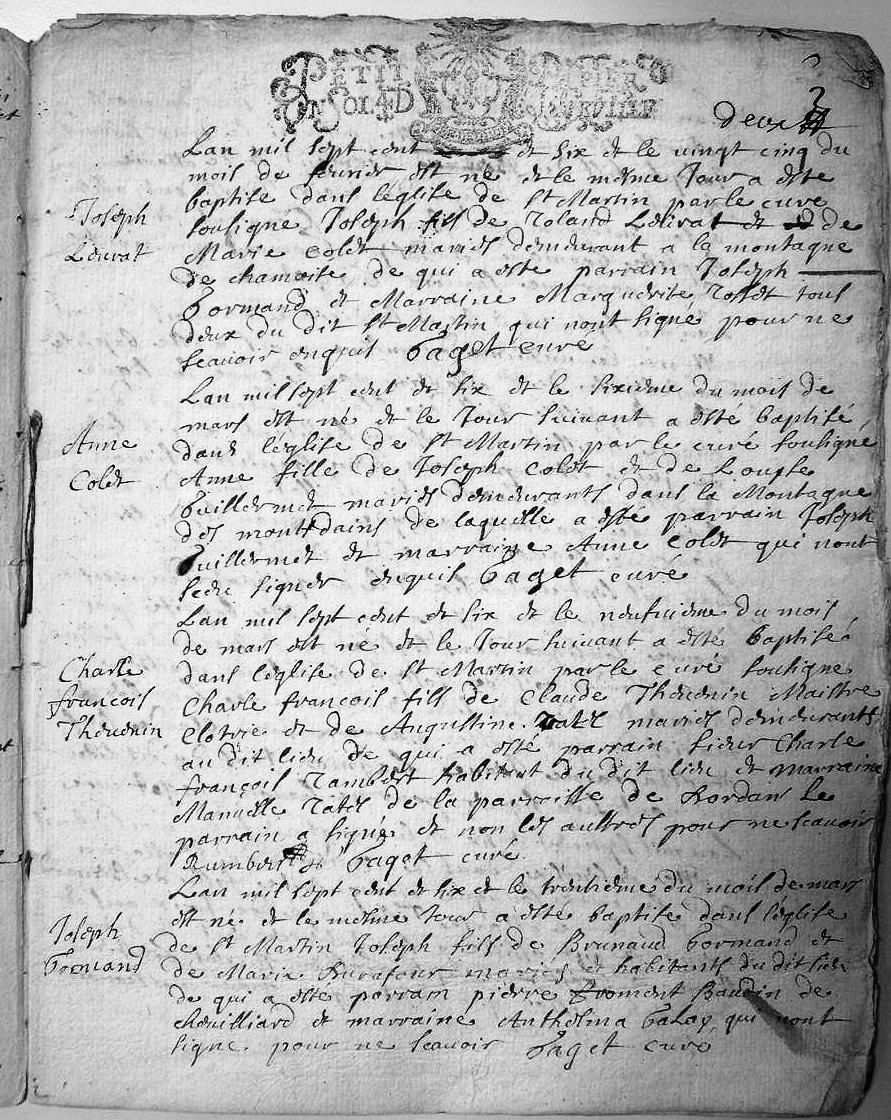 PETIT PAPIER
UN SOL 4 D LA FEUILLE
deux
3
Lan mil sept cent et six et le vingt cinq du
mois de feuvrier est né et le mesme Jour a esté
baptisé dans léglise de st Martin par le curé
Joseph
Leurat
sousigné Joseph fils de Roland Leurat et de
Marie Colet mariés demeurant a la montagne
de chamoise de qui a esté parrain Joseph
Gormand et Marraine Marguerite Rosset tous
deux du dit st Martin qui nont signe pour ne
scauoir enquis Paget curé
Lan mil sept cent et six et le sixieme du mois de
mars est né et le Jour suiuant a esté baptisé
Anne
Colet
dans léglise de st Martin par le curé sousigné
Anne fille de Joseph Colet et de Louyse
Guillermet mariés demeurants dans la Montagne
des montsdains de laquelle a esté parrain Joseph
Guillermet et marraine Anne Colet qui nont
sceu signer enquis Paget curé
Lan mil sept cent et six et le neufuieme du mois
de mars est né et le Jour suiuant a esté baptisé
Charle
francois
Theuenin
dans léglise de st Martin par le curé sousigné
Charle francois fils de Claude Theuenin Maistre
et de Augustine Ratel mariés demeurants
au dit lieu de qui a esté parrain sieur Charle
françois Rambert habitant du dit lieu et marraine
Manuelle Ratel de la parroisse de Le
parrain a signé et non les aultres pour ne scauoir
Paget curé
Lan mil sept cent et six et le trentieme du mois de mars
est né et le mesme Jour a esté baptisé dans léglise
Joseph
Gormand
de st Martin Joseph fils de Brunaud Gormand et
de Marie mariés et habitants du dit lieu
de qui a esté parrain pierre froment Baudin de
cheuilliard et marraine Anthelma Galay qui nont
signe pour ne scauoir Paget curé